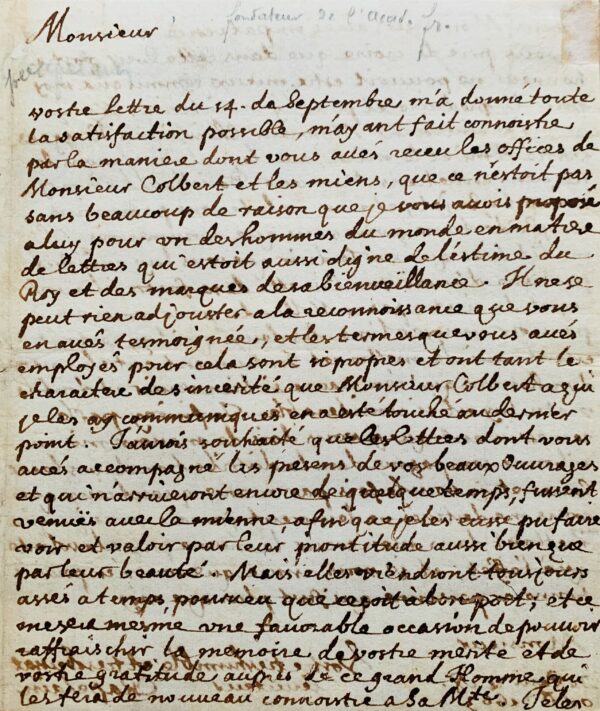 fondateur de l'Acad. fr.
Monsieur
vostre lettre du 14. de Septembre m'a donné toute
la satisfaction possible, m'ayant fait connoistre
par la maniere dont vous avés receu les offices de
Monsieur Colbert et les miens, que ce n'estoit pas
sans beaucoup de raison que je vous avois proposé
a luy pour un des hommes du monde en matiere
de lettres qui estoit aussi digne de l'éstime du
Roy et des marques de sa bienveillance. Il ne se
peut rien adjouster a la reconnoissance que vous
en avés tesmoignée, et les termes que vous avés
employés pour cela sont si propres et ont tant le
charactere de sincerité que Monsieur Colbert a qui
je les ay communiqués en a esté touché au dernier
point. J'aurois souhaité que les lettres dont vous
avés accompagné les présens de vos beaux Ouvrages
et qui n'arriveront encore de quelque temps, fussent
venuës avec la mienne, afin que je les eusse pu faire
voir et valoir par leur prontitude aussi bien que
par leur beauté. Mais elles viendront tousjours
assés a temps pourveu que ce soit a bon port, et ce
me sera mesme une favorable occasion de pouvoir
raffraischir la memoire de vostre merite et de
vostre gratitude aupres de ce grand Homme qui
les fera de nouveau connoistre a Sa Mté. Je les